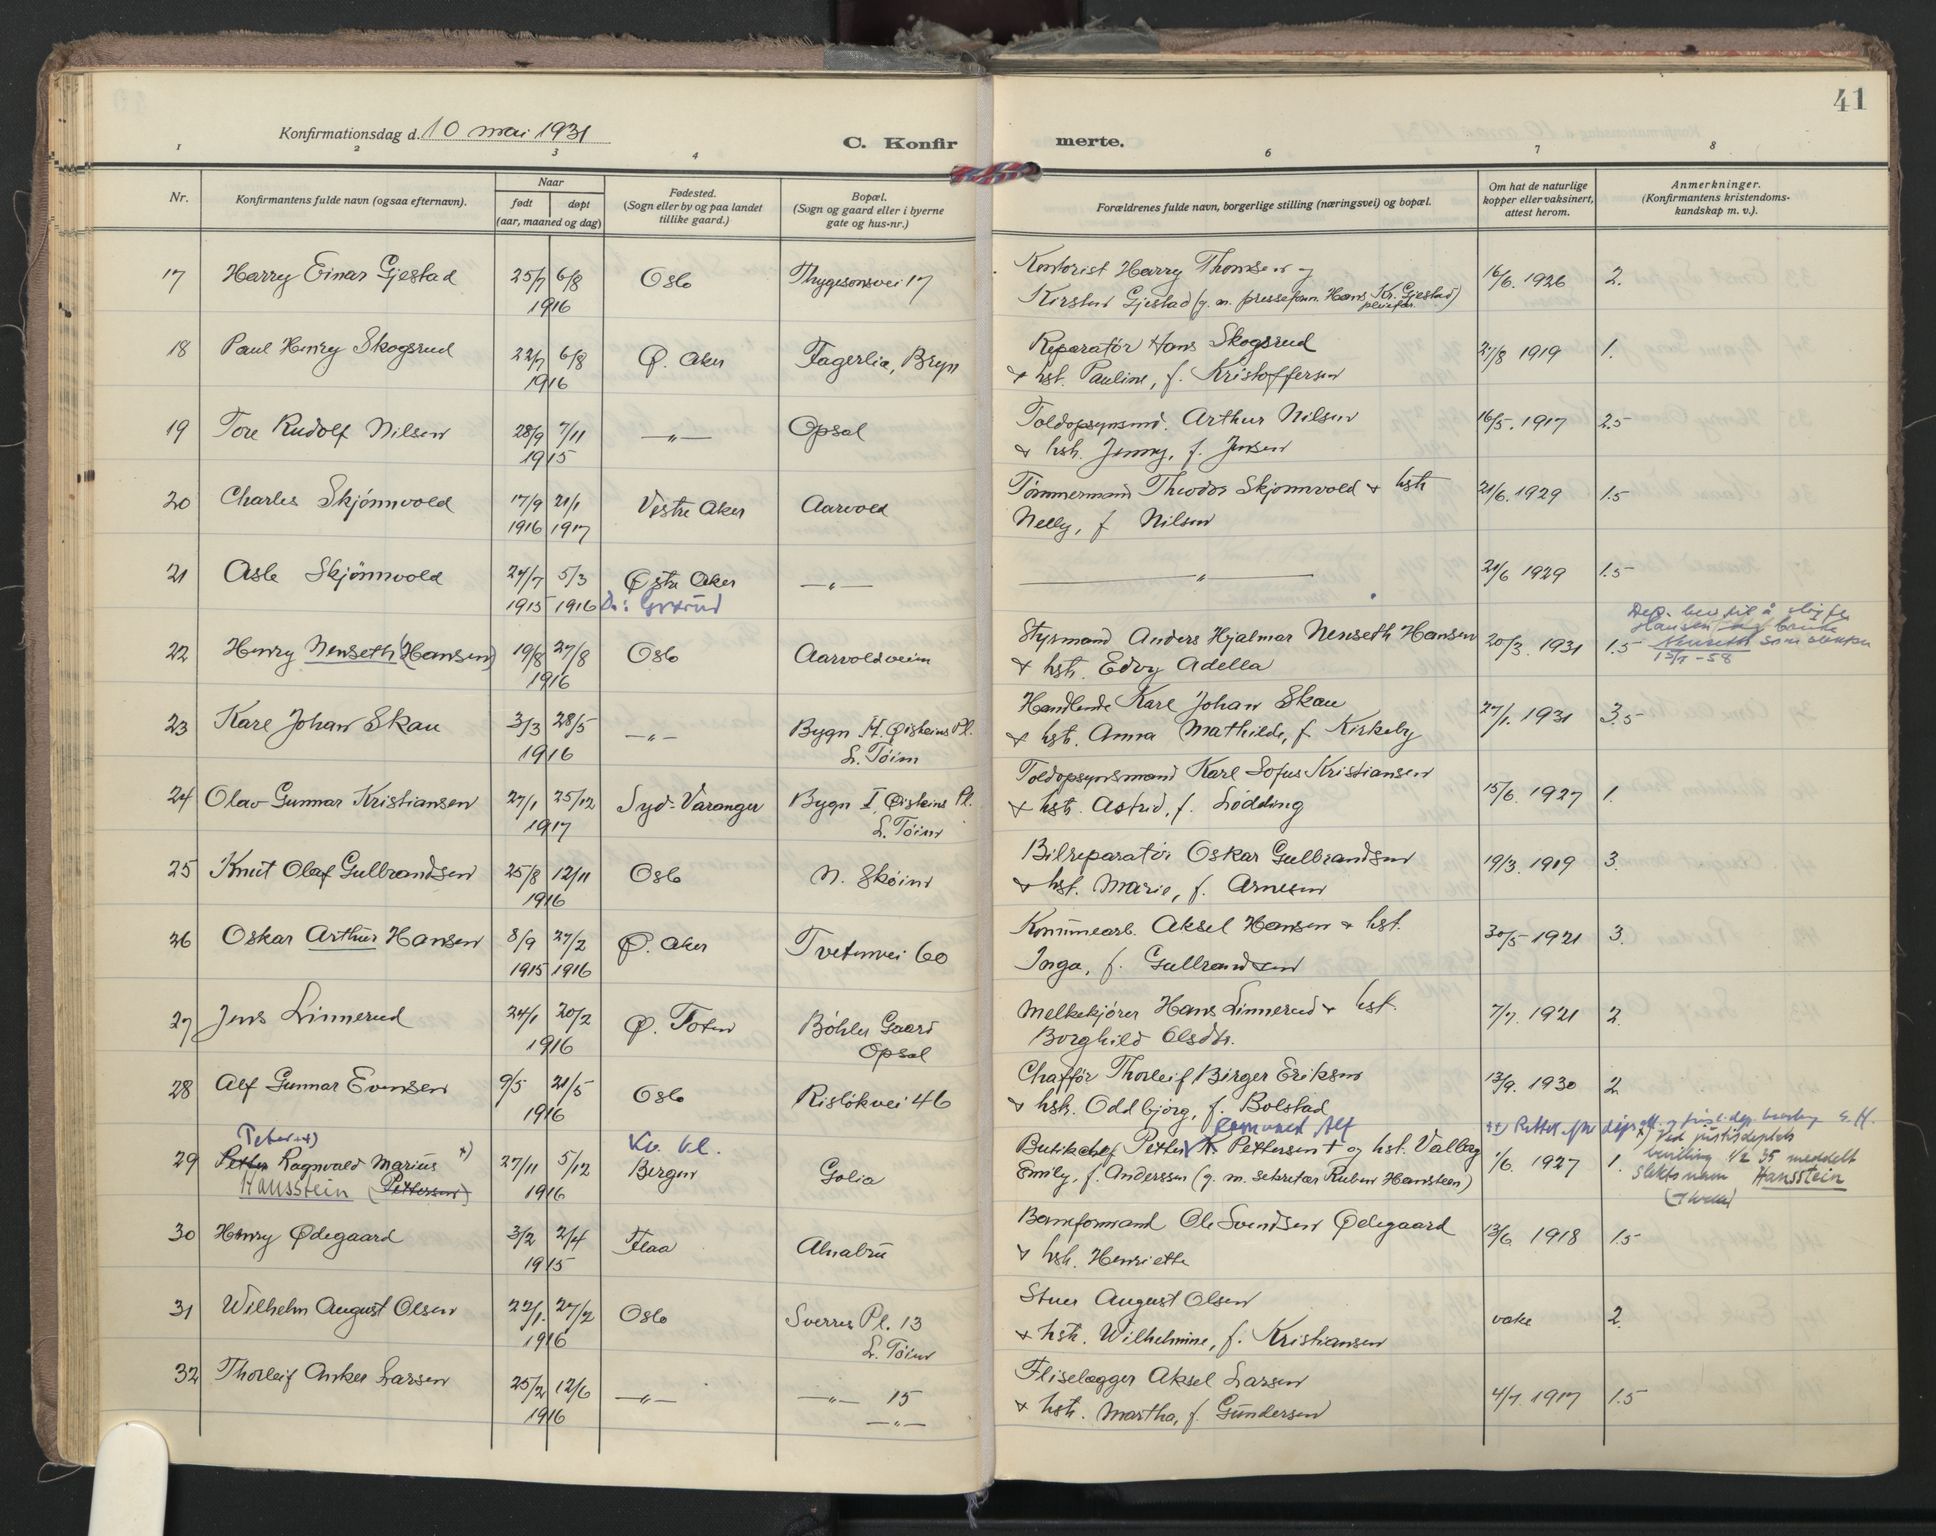 41
Konfirmationsdag d. 10 mai 1931
C. Konfirmerte.
1 2 3 4 6 7 8
Nr.
Konfirmantens fulde navn (ogsaa efternavn).
Naar
født døpt
(aar, maaned og dag)
Fødested.
(Sogn eller by og paa landet
tillike gaard.)
Bopæl.
(Sogn og gaard eller i byerne
gate og hus-nr.)
Forældrenes fulde navn, borgerlige stilling (næringsvei) og bopæl.
Om hat de naturlige
kopper eller vaksinert,
attest herom.
Anmerkninger.
(Konfirmantens kristendoms-
kundskap m. v.).
17 Harry Einar Gjestad 25/7 6/8 Oslo Thygesonsvei 17 Kontorist Harry Thomsen og 16/6. 1926 2.
1916 Kirsten Gjestad (g. m. presseform. Hans Kr. Gjestad)
pleiefar.
18 Paul Henry Skogsrud 22/7 6/8 Ø. Aker Fagerlia, Bryn Reparatør Hans Skogsrud 27/8 1919 1.
1916 + hst. Pauline, f. Kristoffersen
19 Tore Rudolf Nilsen 28/9 7/11 —"— Opsal Toldopsynsmd. Arthur Nilsen 16/5. 1917 2.5
1915 + hst. Jenny, f. Jensen
20 Charles Skjønnvold 17/9 21/1 Vestre Aker Aarvold Tømmermand Theodor Skjønnvold + hst. 21/6. 1929 1.5
1916 1917 Nelly, f. Nilsen
21 Asle Skjønnvold 24/7 5/3 Østre Aker —"— —"— 21/6 1929 1.5
1915 1916
22 Henry Nenseth (Hansen) 19/8 27/8 Oslo Aarvoldveien Styrmand Anders Hjalmar Nenseth Hansen 20/3. 1931 1.5
1916 + hst. Edvy Adella
Dep. bev. til å sløife
Hansen og bruke
Nenseth som slektsn.
15/7-58
23 Karl Johan Skau 3/3 28/5 —"— Bygn H. Øisteins Pl. Handlende Karl Johan Skau 27/1. 1931 3.5
1916 L. Tøien + hst. Anna Mathilde, f. Kirkeby
24 Olav Gunnar Kristiansen 27/1 25/12 Syd-Varanger Bygn I, Øisteins Pl. Toldopsynsmand Karl Sofus Kristiansen 15/6. 1927 1.
1917 L. Tøien + hst. Astrid, f. Lødding
25 Knut Olaf Gulbrandsen 25/8 12/11 Oslo N. Skøien Bilreparatør Oskar Gulbrandsen 19/3. 1919 3.
1916 + hst. Marie, f. Arnesen
26 Oskar Arthur Hansen 8/9 27/2 Ø. Aker Tvetenvei 60 Kommearb. Aksel Hansen + hst. 30/5 1921 3.
1915 1916 Inga, f. Gulbrandsen
27 Jens Linnerud 24/1 20/2 Ø. Toten Bøhler Gaard Melkekjører Hans Linnerud + hst. 7/7. 1921 2.
1916 Opsal Borghild Olsdtr.
28 Alf Gunnar Evensen 9/5 21/5 Oslo Risløkvei 46 Chaffør Thorleif Birger Eriksen 13/9. 1930 2.
1916 + hst. Oddbjørg, f. Bolstad
29 Petter Ragnvald Marius x) 27/11 5/12 Bergen Golia Butikchef Petter K. Pettersen + og hst. Valborg 1/6. 1927 1.
Hansstein (Pettersen) 1916 Emily, f. Anderssen (g. m. sekretær Ruben Hansteen)
x) Ved justisdeptets
bevilling 1/2 35 meddelt
slektsnavn Hansstein
30 Henry Ødegaard 3/2 2/4 Flaa Alnabru Baneformand Ole Svendsen Ødegaard 13/6 1918 1.5
1915 + hst. Henriette
31 Wilhelm August Olsen 22/1. 27/2 Oslo Sverres Pl. 13 Stuer August Olsen vake 2.
1916 L. Tøien + hst. Wilhelmine, f. Kristiansen
32 Thorleif Anker Larsen 25/2 12/6 —"— —"— 15 Fliselægger Aksel Larsen 4/7. 1917 1.5
1916 —"— + hst. Martha, f. Gundersen